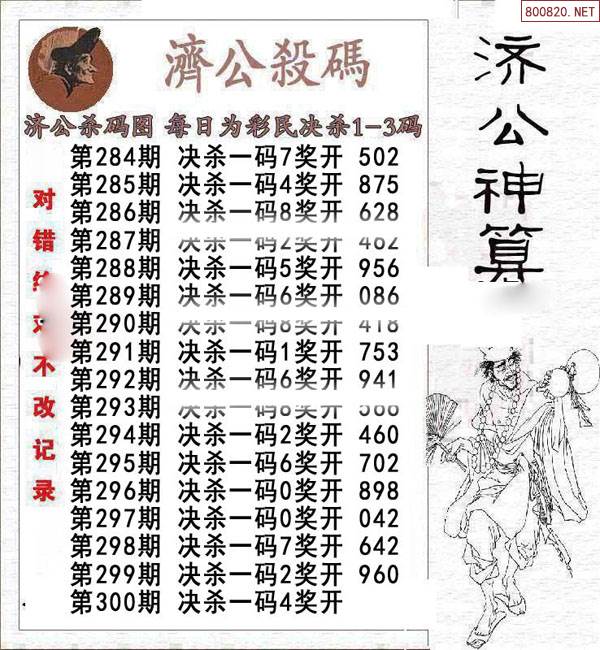 800820.NET
濟公殺碼
济公杀码图 每日为彩民决杀1-3码
第284期 决杀一码7奖开 502
第285期 决杀一码4奖开 875
第286期 决杀一码8奖开 628
第287期 决杀一码2奖开 462
第288期 决杀一码5奖开 956
第289期 决杀一码6奖开 086
第290期 决杀一码8奖开 418
第291期 决杀一码1奖开 753
第292期 决杀一码6奖开 941
第293期 决杀一码奖开
第294期 决杀一码2奖开 460
第295期 决杀一码6奖开 702
第296期 决杀一码0奖开 898
第297期 决杀一码0奖开 042
第298期 决杀一码7奖开 642
第299期 决杀一码2奖开 960
第300期 决杀一码4奖开
对错不改记录
济公神算